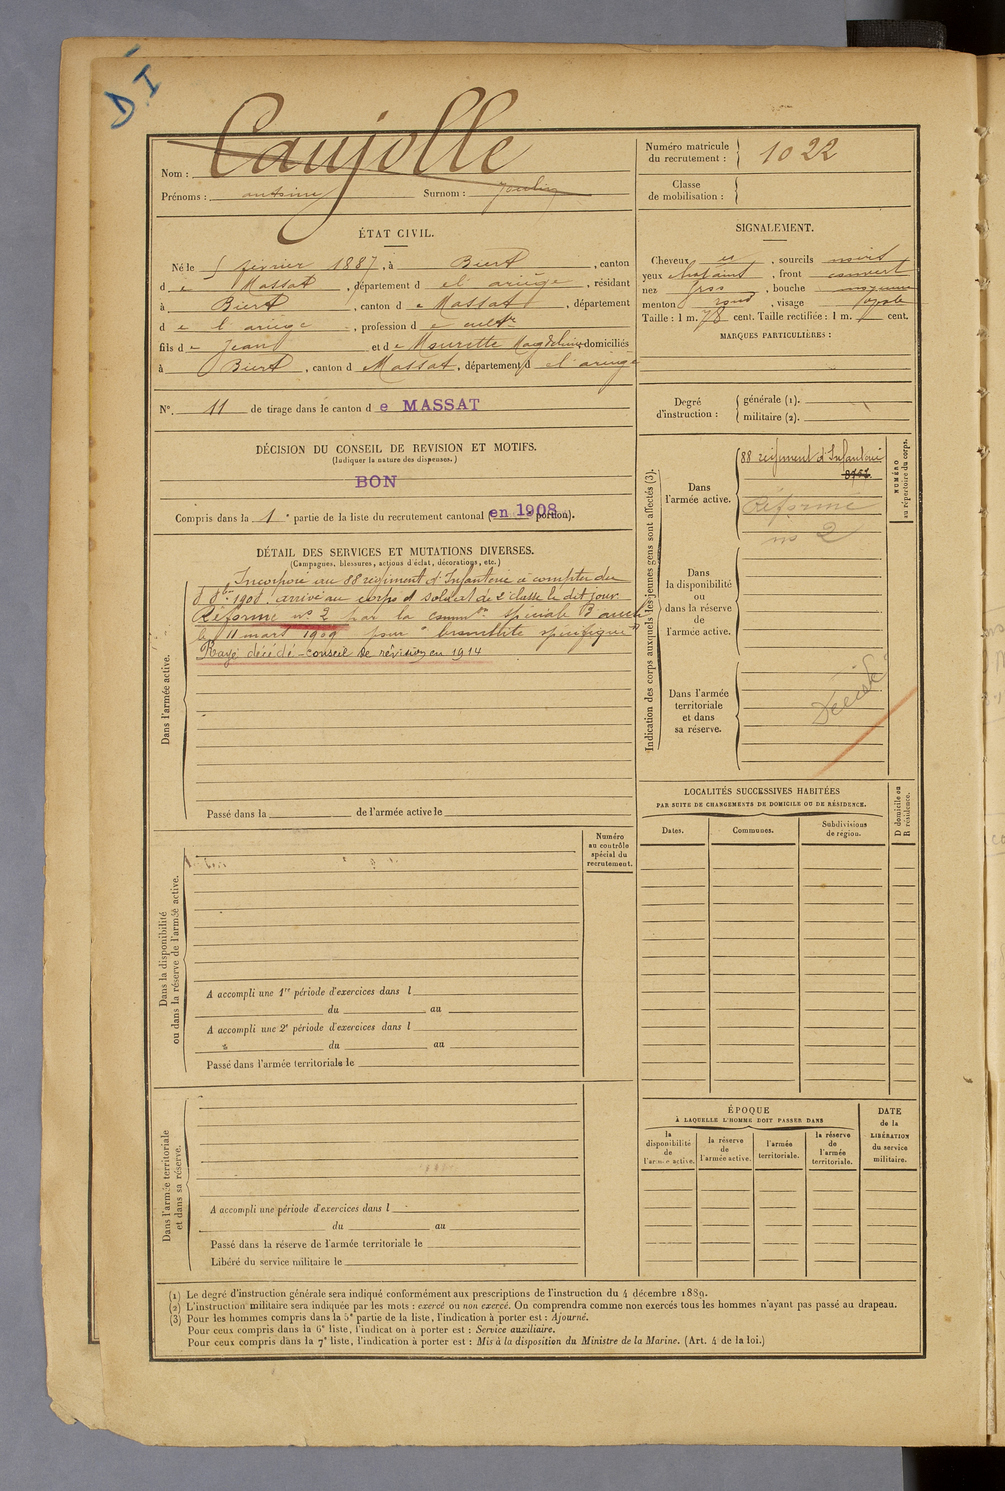 D.I
Caujolle
Nom :
Prénoms : antoine Surnom :
Numéro matricule du recrutement : 1022
Classe de mobilisation :
ÉTAT CIVIL.
Né le 5 février 1887, à Biert, canton
de Massat, département de l'ariège, résidant
à Biert, canton de Massat, département
de l'ariège, profession de cultr
fils de Jean et de Mourette Magdeleine domiciliés
à Biert, canton de Massat, département de l'ariège
N° 11 de tirage dans le canton de MASSAT
DÉCISION DU CONSEIL DE REVISION ET MOTIFS.
(Indiquer la nature des dispenses.)
BON
Compris dans la 1e partie de la liste du recrutement cantonal (en 1908 portion).
SIGNALEMENT.
Cheveux et, sourcils noirs
yeux chatains, front couvert
nez gros, bouche moyenne
menton rond, visage ovale
Taille : 1 m. 78 cent. Taille rectifiée : 1 m. cent.
MARQUES PARTICULIÈRES :
Degré d'instruction :
générale (1).
militaire (2).
DÉTAIL DES SERVICES ET MUTATIONS DIVERSES.
(Campagnes, blessures, actions d'éclat, décorations, etc.)
Dans l'armée active.
Incorporé au 88 régiment d'Infanterie à compter du
8 8bre 1908. arrivé au corps et soldat de 2e classe le dit jour.
Réformé n° 2 par la common spéciale
le 11 mars 1909 pour
Rayé décédé - conseil de révision en 1914
Passé dans la de l'armée active le
Indication des corps auxquels les jeunes gens sont affectés (3).
NUMÉRO au répertoire du corps.
Dans l'armée active.
88 régiment d'Infanterie
Réformé
n° 2
Dans la disponibilité ou dans la réserve de l'armée active.
Dans l'armée territoriale et dans sa réserve.
Décédé
LOCALITÉS SUCCESSIVES HABITÉES
PAR SUITE DE CHANGEMENTS DE DOMICILE OU DE RÉSIDENCE.
Dates. Communes. Subdivisions de région.
D domicile ou R résidence.
Numéro au contrôle spécial du recrutement.
Dans la disponibilité ou dans la réserve de l'armée active.
A accompli une 1re période d'exercices dans l
du au
A accompli une 2e période d'exercices dans l
du au
Passé dans l'armée territoriale le
Dans l'armée territoriale et dans sa réserve.
A accompli une période d'exercices dans l
du au
Passé dans la réserve de l'armée territoriale le
Libéré du service militaire le
ÉPOQUE
À LAQUELLE L'HOMME DOIT PASSER DANS
la disponibilité de l'armée active.
la réserve de l'armée active.
l'armée territoriale.
la réserve de l'armée territoriale.
DATE de la LIBÉRATION du service militaire.
(1) Le degré d'instruction générale sera indiqué conformément aux prescriptions de l'instruction du 4 décembre 1889.
(2) L'instruction militaire sera indiquée par les mots : exercé ou non exercé. On comprendra comme non exercés tous les hommes n'ayant pas passé au drapeau.
(3) Pour les hommes compris dans la 5e partie de la liste, l'indication à porter est : Ajourné.
Pour ceux compris dans la 6e liste, l'indication à porter est : Service auxiliaire.
Pour ceux compris dans la 7e liste, l'indication à porter est : Mis à la disposition du Ministre de la Marine. (Art. 4 de la loi.)